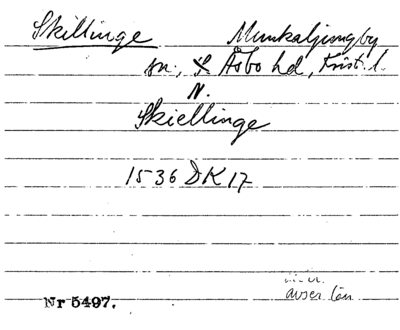 Skillinge Munkaljungby
sn, S. Åsbo hd, Krist. l.
N.
Skiellinge
1536 DK 17
avser län
Nr 5497.